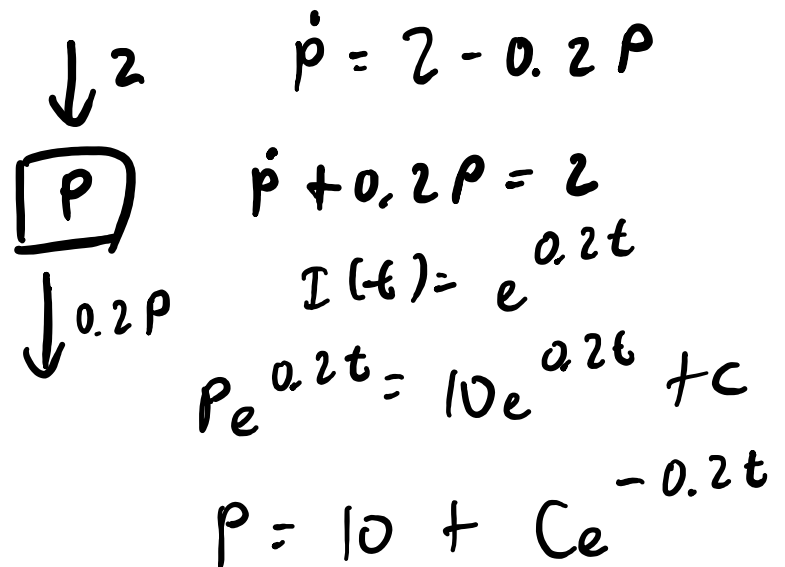 ↓ 2
P
↓ 0.2P
ṗ = 2 - 0.2P
ṗ + 0.2P = 2
I(t) = e^{0.2t}
Pe^{0.2t} = 10e^{0.2t} + c
P = 10 + Ce^{-0.2t}